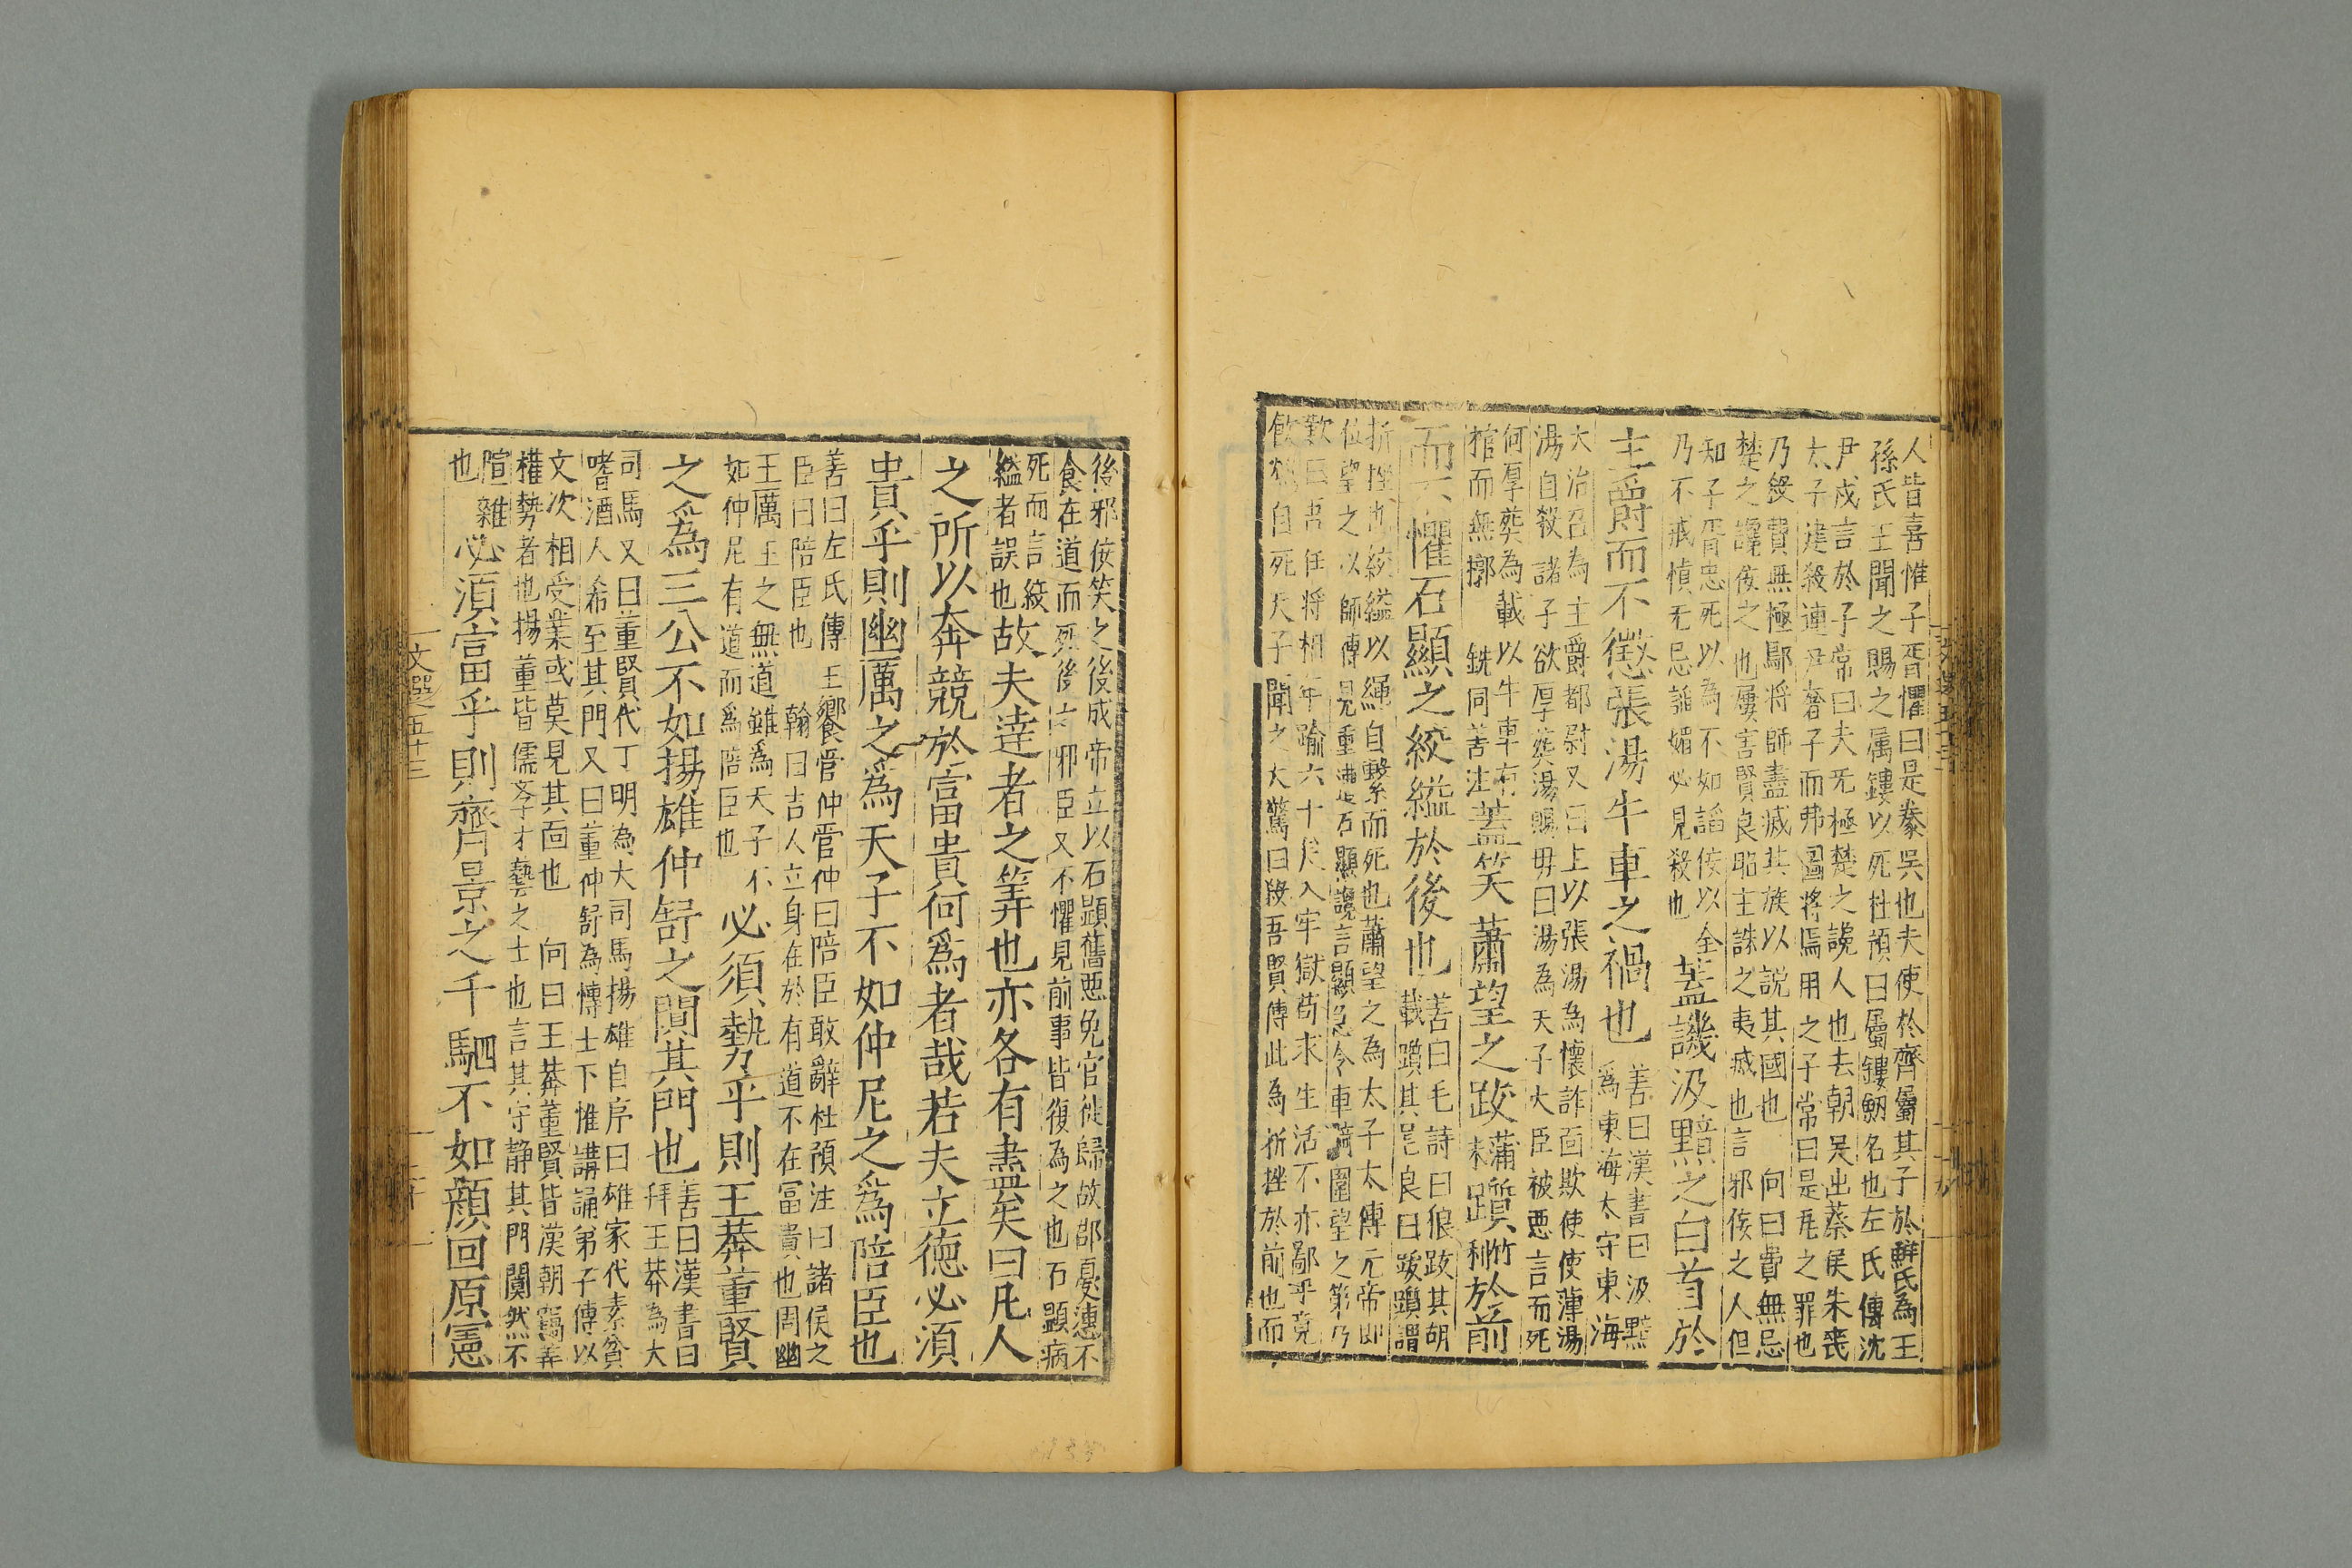 人皆喜惟子胥懼曰是豢吳也夫使於齊屬其子於鮮氏為王
孫氏王聞之賜之属鏤以死杜預曰屬鏤劒名也左氏傳沈
尹戍言於子常曰夫无極楚之讒人也去朝吳出蔡侯朱喪
太子建殺連尹奢子而弗圖將焉用之子常曰是瓦之罪也
乃殺費無極鄢将師盡滅其族以説其國也 向曰費無忌
楚之讒佞之也屢害賢良昭主誅之夷戚也言邪佞之人但
知子胥忠死以為不如謟佞以全
乃不戒慎无忌謟媚必見殺也
蓋譏汲黯之白首於
主爵而不懲張湯牛車之禍也
善曰漢書曰汲黯
為東海太守東海
大治召為主爵都尉又曰上以張湯為懷詐面欺使使薄湯
湯自殺諸子欲厚葬湯賜毋曰湯為天子大臣被惡言而死
何厚葬為載以牛車有
棺而無槨 銑同善注
蓋笑蕭望之跋躓於前
而不懼石顯之絞縊於後也
善曰毛詩曰狼跋其胡
載躓其 良曰跋躓謂
折挫也絞縊以繩自繫而死也蕭望之為太子太傅元帝即
位望之以師傅見重 石顯讒言顯急令車騎圍望之第乃
歎曰吾任将相年踰六十矣入牢獄苟求生活不亦鄙乎竟
飲鴆自死天子聞之大驚曰殺吾賢傅此為折挫於前也而
後邪佞笑之後成帝立以石顯舊惡免官徙歸故郡憂懣不
食在道而死後之邪臣又不懼見前事皆復為之也石顯病
死而言絞
縊者誤也
故夫達者之筭也亦各有盡矣曰凡人
之所以奔競於富貴何為者哉若夫立德必須
貴乎則幽厲之為天子不如仲尼之為陪臣也
善曰左氏傳王饗管仲管仲曰陪臣敢辭杜預注曰諸侯之
臣曰陪臣也 翰曰古人立身在於有道不在冨貴也周幽
王厲王之無道雖為天子不
如仲尼有道而為陪臣也
必須勢乎則王莽董賢
之為三公不如揚雄仲舒之闃其門也
善曰漢書曰
拜王莽為大
司馬又曰董賢代丁明為大司馬揚雄自序曰雄家代素貧
嗜酒人希至其門又曰董仲舒為博士下惟講誦弟子傳以
文次相受業或莫見其面也 向曰王莽董賢皆漢朝竊弄
權勢者也揚董皆儒學才藝之士也言其守静其門闃然不
喧雜
也
必須富乎則齊景之千駟不如顔回原憲
文選五十三